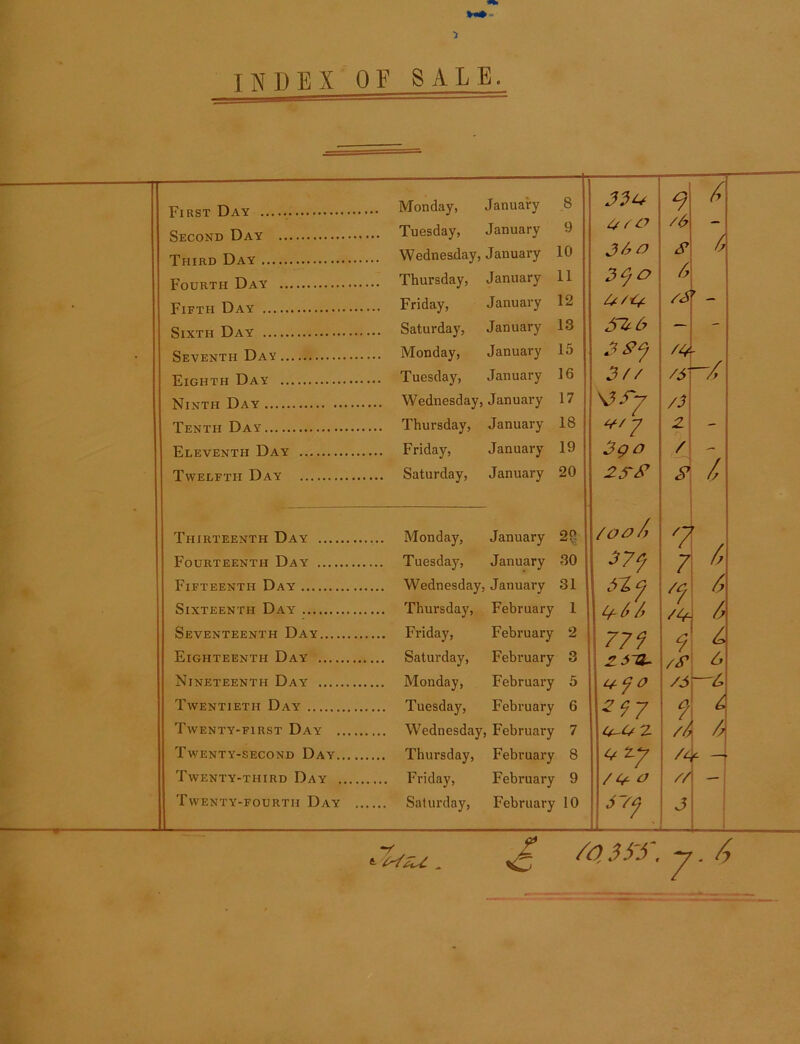 INDEX OF SALE.
First Day ............ Monday, January 8 334 9 6
Second Day ............ Tuesday, January 9 410 16 -
Third Day ............ Wednesday, January 10 360 8 6
Fourth Day ............ Thursday, January 11 390 6
Fifth Day ............ Friday, January 12 414 18 -
Sixth Day ............ Saturday, January 13 526 - -
Seventh Day ............ Monday, January 15 389 14
Eighth Day ............ Tuesday, January 16 311 15 6
Ninth Day ............ Wednesday, January 17 357 13
Tenth Day ............ Thursday, January 18 417 2 -
Eleventh Day ............ Friday, January 19 390 1 -
Twelfth Day ............ Saturday, January 20 258 8 6
Thirteenth Day ............ Monday, January 29 1006 17
Fourteenth Day ............ Tuesday, January 30 379 7 6
Fifteenth Day ............ Wednesday, January 31 529 19 6
Sixteenth Day ............ Thursday, February 1 466 14 6
Seventeenth Day ............ Friday, February 2 779 9 6
Eighteenth Day ............ Saturday, February 3 252 18 6
Nineteenth Day ............ Monday, February 5 490 15 6
Twentieth Day ............ Tuesday, February 6 297 9 6
Twenty-first Day ............ Wednesday, February 7 442 16 6
Twenty-second Day ............ Thursday, February 8 427 14 -
Twenty-third Day ............ Friday, February 9 140 11 -
Twenty-fourth Day ...... Saturday, February 10 579 3
£ 10.355. 7. 6